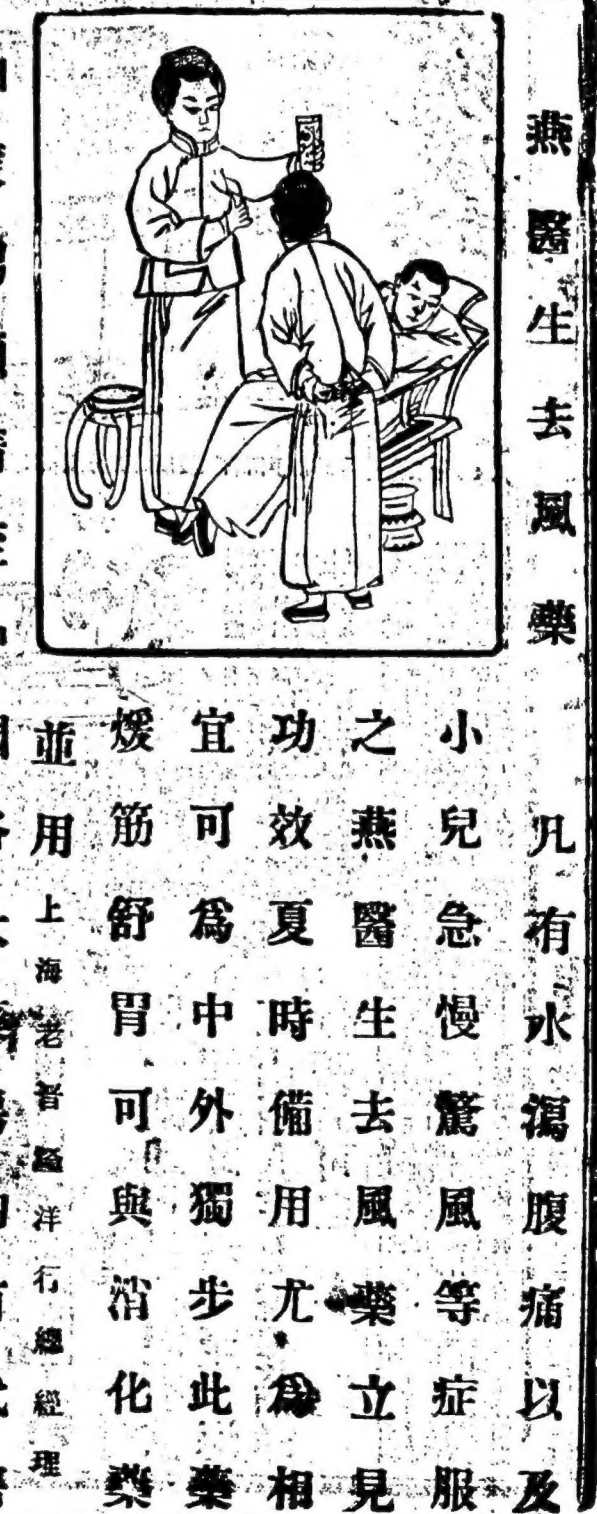 燕醫生去風藥
凡有水瀉腹痛以及
小兒急慢驚風等症服
之燕醫生去風藥立見
功效夏時備用尤為相
宜可為中外獨步此藥
煖筋舒胃可與消化藥
並用上海老晋隆洋行總經理